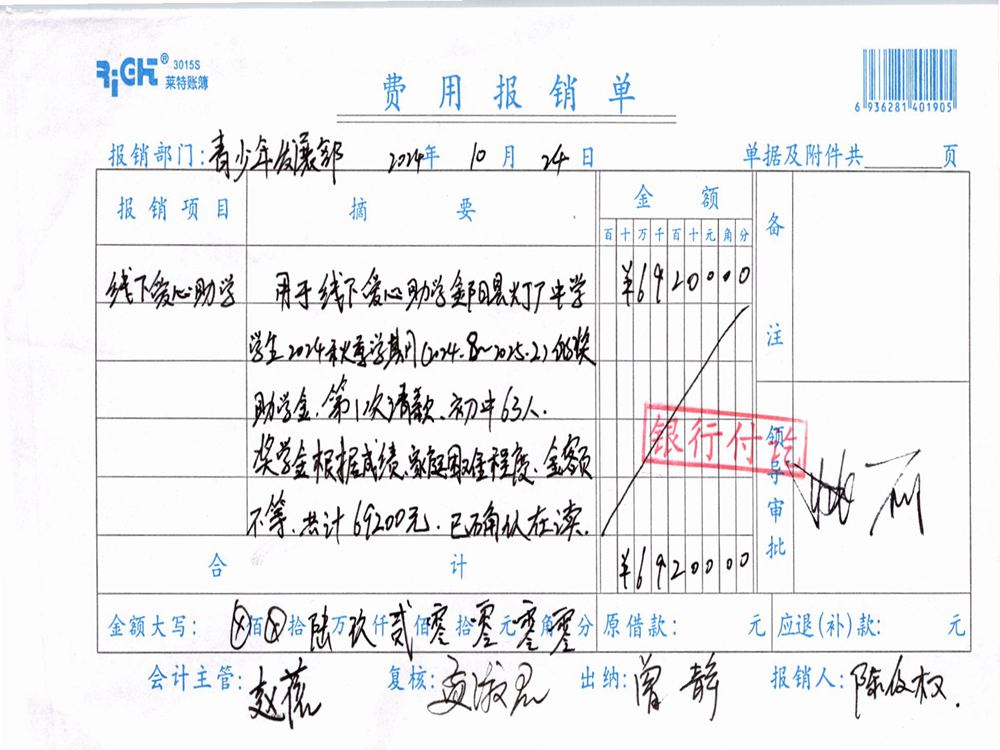 RiGHT® 3015S
莱特账簿
费用报销单
6 936281 401905
报销部门：青少年发展部 2024年 10月 24日 单据及附件共 页
报销项目 摘要 金额 备注
百十万千百十元角分
线下爱心助学 用于线下爱心助学鄱阳县油墩中学 ¥6920000
学生2024秋季学期(2024.8~2025.2)的奖
助学金，第1次请款，初中63人.
奖学金根据成绩、家庭困难程度，金额
不等，共计69200元，已确认在读.
银行付讫
领导审批
合计 ¥6920000
金额大写：ⓧ佰ⓧ拾陆万玖仟贰佰零拾零元零角零分 原借款： 元 应退(补)款： 元
会计主管： 复核： 出纳：曾静 报销人：陈俊权.